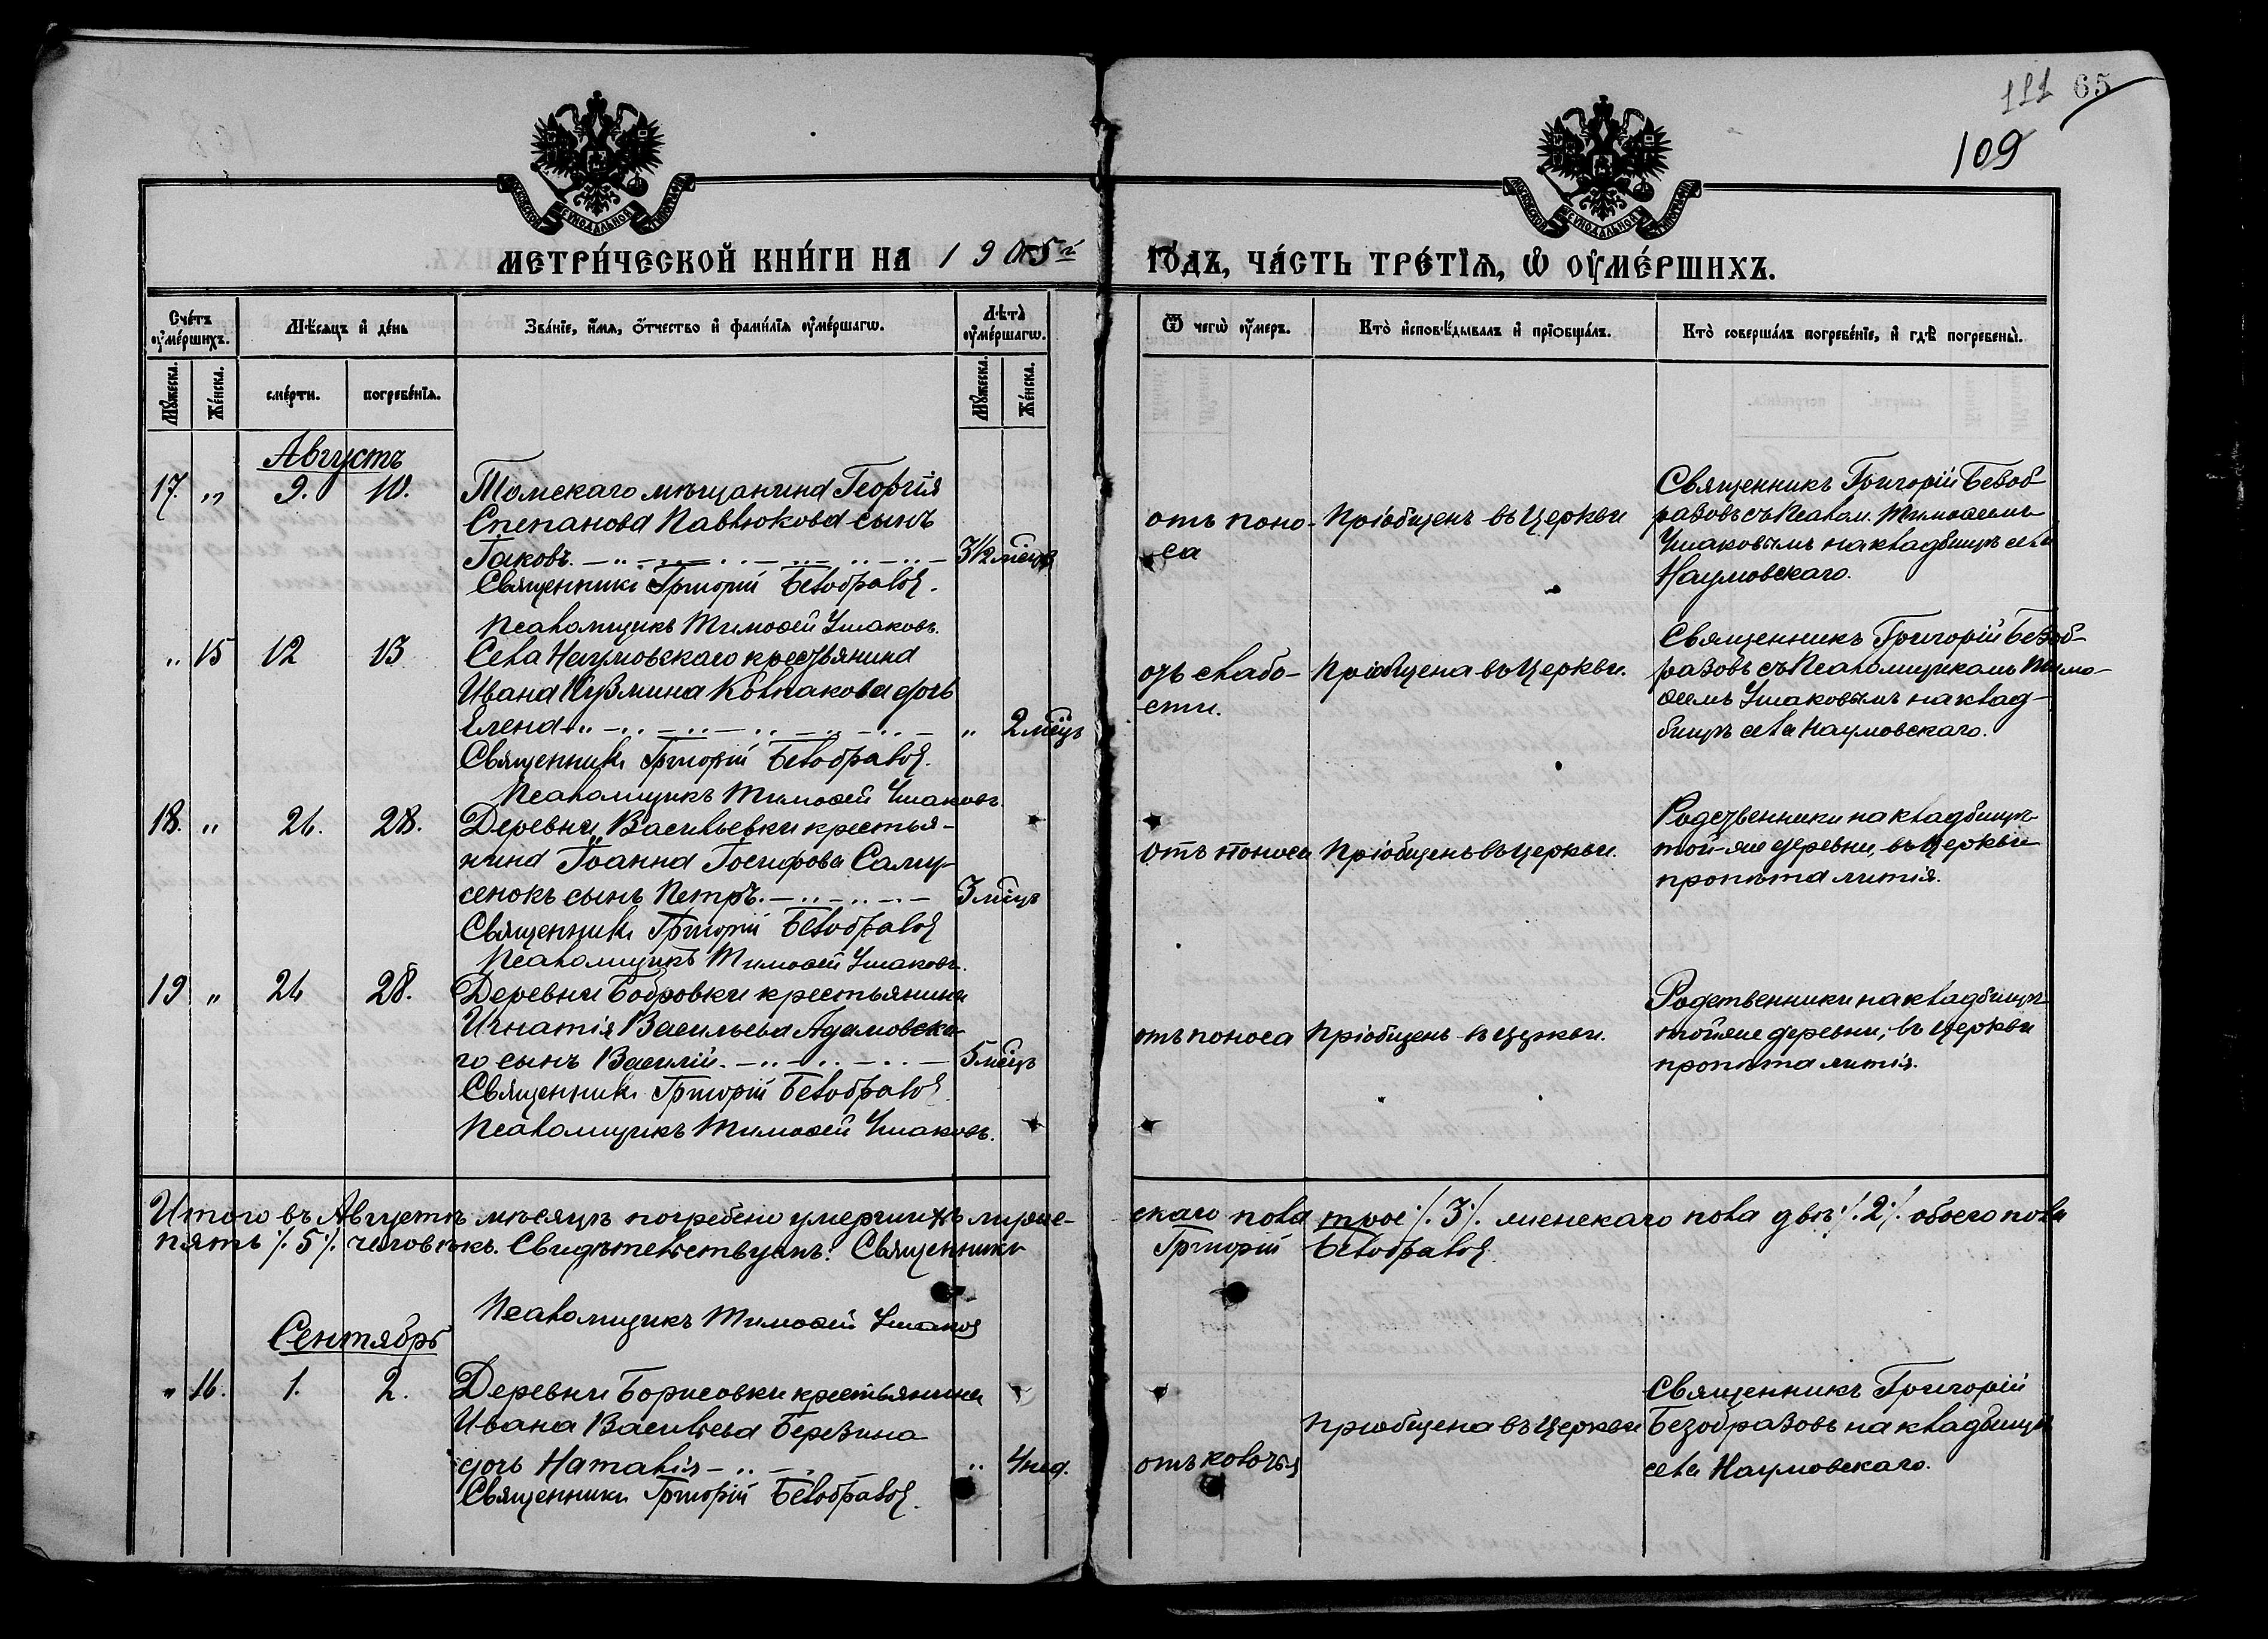 111 65
109
МЕТРИ́ЧЕСКОЙ КНИ́ГИ НА 1905й ГО́ДЪ, ЧА́СТЬ ТРЕ́ТІѦ, Ѽ ОУ҆МЕ́РШИХЪ.
Сче́тъ оу҆ме́ршихъ.
Мѣ́сяцъ и҆ де́нь
Зва́нїе, и҆́мѧ, ѻ҆́тчество и҆ фами́лїѧ оу҆ме́ршагѡ.
Лѣ́та оу҆ме́ршагѡ.
Ѿ чегѡ̀ оу҆́меръ.
Кто̀ и҆сповѣ́дывалъ и҆ прїѡбща́лъ.
Кто̀ соверша́лъ погребе́нїе, и҆ гдѣ̀ погребены̀.
Мꙋ́жеска.
Же́нска.
сме́рти.
погребе́нїѧ.
Мꙋ́жеска.
Же́нска.
Августъ
17. „ 9. 10.
Томскаго мѣщанина Георгія
Степанова Павлюкова сынъ
Іаковъ. 3½ мѣсц
Священникъ Григорій Безобразовъ.
Псаломщикъ Тимоѳей Ушаковъ.
отъ поно-
са
Пріобщенъ въ Церкви
Священникъ Григорій Безоб-
разовъ съ Псалом. Тимоѳеемъ
Ушаковымъ на кладбищѣ села
Наумовскаго.
„ 15 12 13
Села Наумовскаго крестьянина
Ивана Кузмина Колпакова дочь
Елена „ 2 мѣсц
Священникъ Григорій Безобразовъ.
Псаломщикъ Тимоѳей Ушаковъ.
отъ слабо-
сти.
Пріобщена въ Церкви.
Священникъ Григорій Безоб-
разовъ съ Псаломщикомъ Тимо-
ѳеемъ Ушаковымъ на клад-
бищѣ села Наумовскаго.
18. „ 26. 28.
Деревни Васильевки крестья-
нина Іоанна Іосифова Саму-
сенокъ сынъ Петръ. 3 мѣсц
Священникъ Григорій Безобразовъ
Псаломщикъ Тимоѳей Ушаковъ.
отъ поноса
Пріобщенъ въ Церкви.
Родственники на кладбищѣ
той-же деревни, въ Церкви
пропѣта литія.
19 „ 26 28.
Деревни Бобровки крестьянина
Игнатія Васильева Адамовска-
го сынъ Василій. 5 мѣсц
Священникъ Григорій Безобразовъ
Псаломщикъ Тимоѳей Ушаковъ.
отъ поноса
Пріобщенъ въ Церкви.
Родственники на кладбищѣ
той же деревни, въ Церкви
пропѣта литія.
Итого въ Августѣ мѣсяцѣ погребено умершихъ муже-скаго пола трое ٪ 3 ٪ женскаго пола двѣ ٪ 2 ٪ обоего пола
пять ٪ 5 ٪ человѣкъ. Свидѣтельствуемъ: Священникъ Григорій Безобразовъ
Псаломщикъ Тимоѳей Ушаковъ
Сентябрь
„ 16. 1. 2.
Деревни Борисовки крестьянина
Ивана Васильева Березина
дочь Наталія „ 4 нед.
Священникъ Григорій Безобразовъ.
отъ колотья
Пріобщена въ Церкви
Священникъ Григорій
Безобразовъ на кладбищѣ
села Наумовскаго.